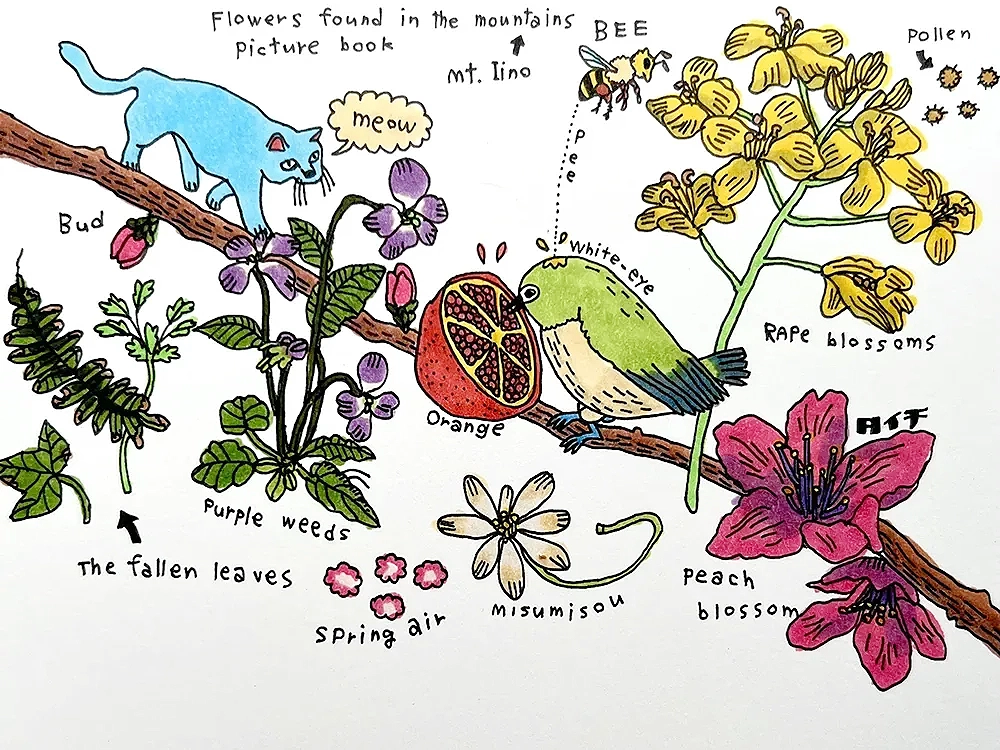 Flowers found in the mountains
picture book
mt. Iino
BEE
Pollen
meow
Pee
Bud
white-eye
RAPe blossoms
Orange
Purple weeds
The fallen leaves
Spring air
misumisou
Peach
blossom